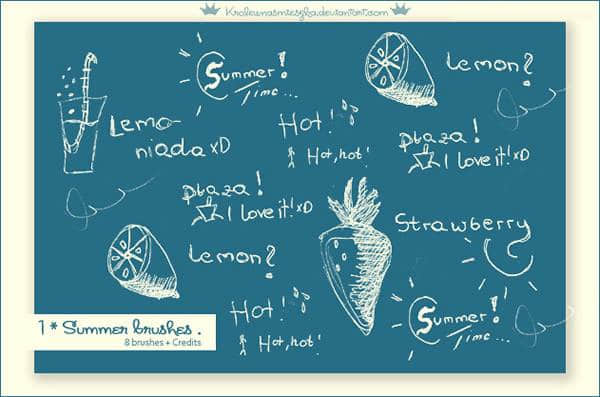 Krolewnasmieszka.deviantart.com
Summer!
Time...
Lemon?
Lemo-
niada xD
Hot!
Hot, hot!
plaza!
I love it! xD
plaza!
I love it! xD
Strawberry
Lemon?
Hot!
Hot, hot!
Summer!
Time...
1 * Summer brushes .
8 brushes + Credits